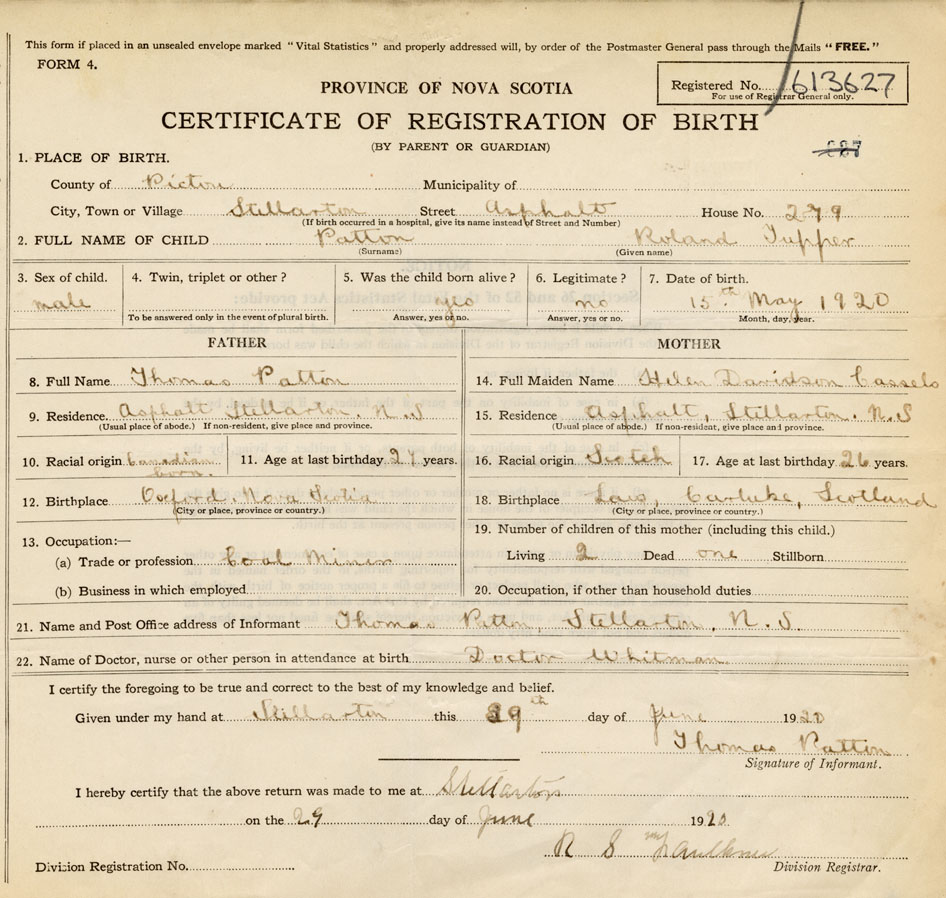 This form if placed in an unsealed envelope marked "Vital Statistics" and properly addressed will, by order of the Postmaster General pass through the Mails "FREE."
FORM 4.
Registered No. 613627
For use of Registrar General only.
PROVINCE OF NOVA SCOTIA
CERTIFICATE OF REGISTRATION OF BIRTH
(BY PARENT OR GUARDIAN)
1. PLACE OF BIRTH.
County of Picton Municipality of
City, Town or Village Stellarton Street Asphalt House No. 279
(If birth occurred in a hospital, give its name instead of Street and Number)
2. FULL NAME OF CHILD Patton Roland Tupper
(Surname) (Given name)
3. Sex of child. 4. Twin, triplet or other? 5. Was the child born alive? 6. Legitimate? 7. Date of birth.
male yes no 15th May 1920
To be answered only in the event of plural birth. Answer, yes or no. Answer, yes or no. Month, day, year.
FATHER MOTHER
8. Full Name Thomas Patton 14. Full Maiden Name Helen Davidson Cassels
9. Residence Asphalt Stellarton. N.S 15. Residence Asphalt, Stellarton. N.S
(Usual place of abode.) If non-resident, give place and province. (Usual place of abode.) If non-resident, give place and province.
10. Racial origin Canadian born. 11. Age at last birthday 27 years. 16. Racial origin Scotch 17. Age at last birthday 26 years.
12. Birthplace Oxford, Nova Scotia 18. Birthplace Carluke, Scotland
(City or place, province or country.) (City or place, province or country.)
13. Occupation:— 19. Number of children of this mother (including this child.)
(a) Trade or profession Coal Miner Living 2 Dead one Stillborn
(b) Business in which employed 20. Occupation, if other than household duties
21. Name and Post Office address of Informant Thomas Patton, Stellarton, N.S.
22. Name of Doctor, nurse or other person in attendance at birth Doctor Whitman
I certify the foregoing to be true and correct to the best of my knowledge and belief.
Given under my hand at Stellarton this 29th day of June 1920
Thomas Patton
Signature of Informant.
I hereby certify that the above return was made to me at Stellarton
on the 29 day of June 1920
R S Faulkner
Division Registration No. Division Registrar.